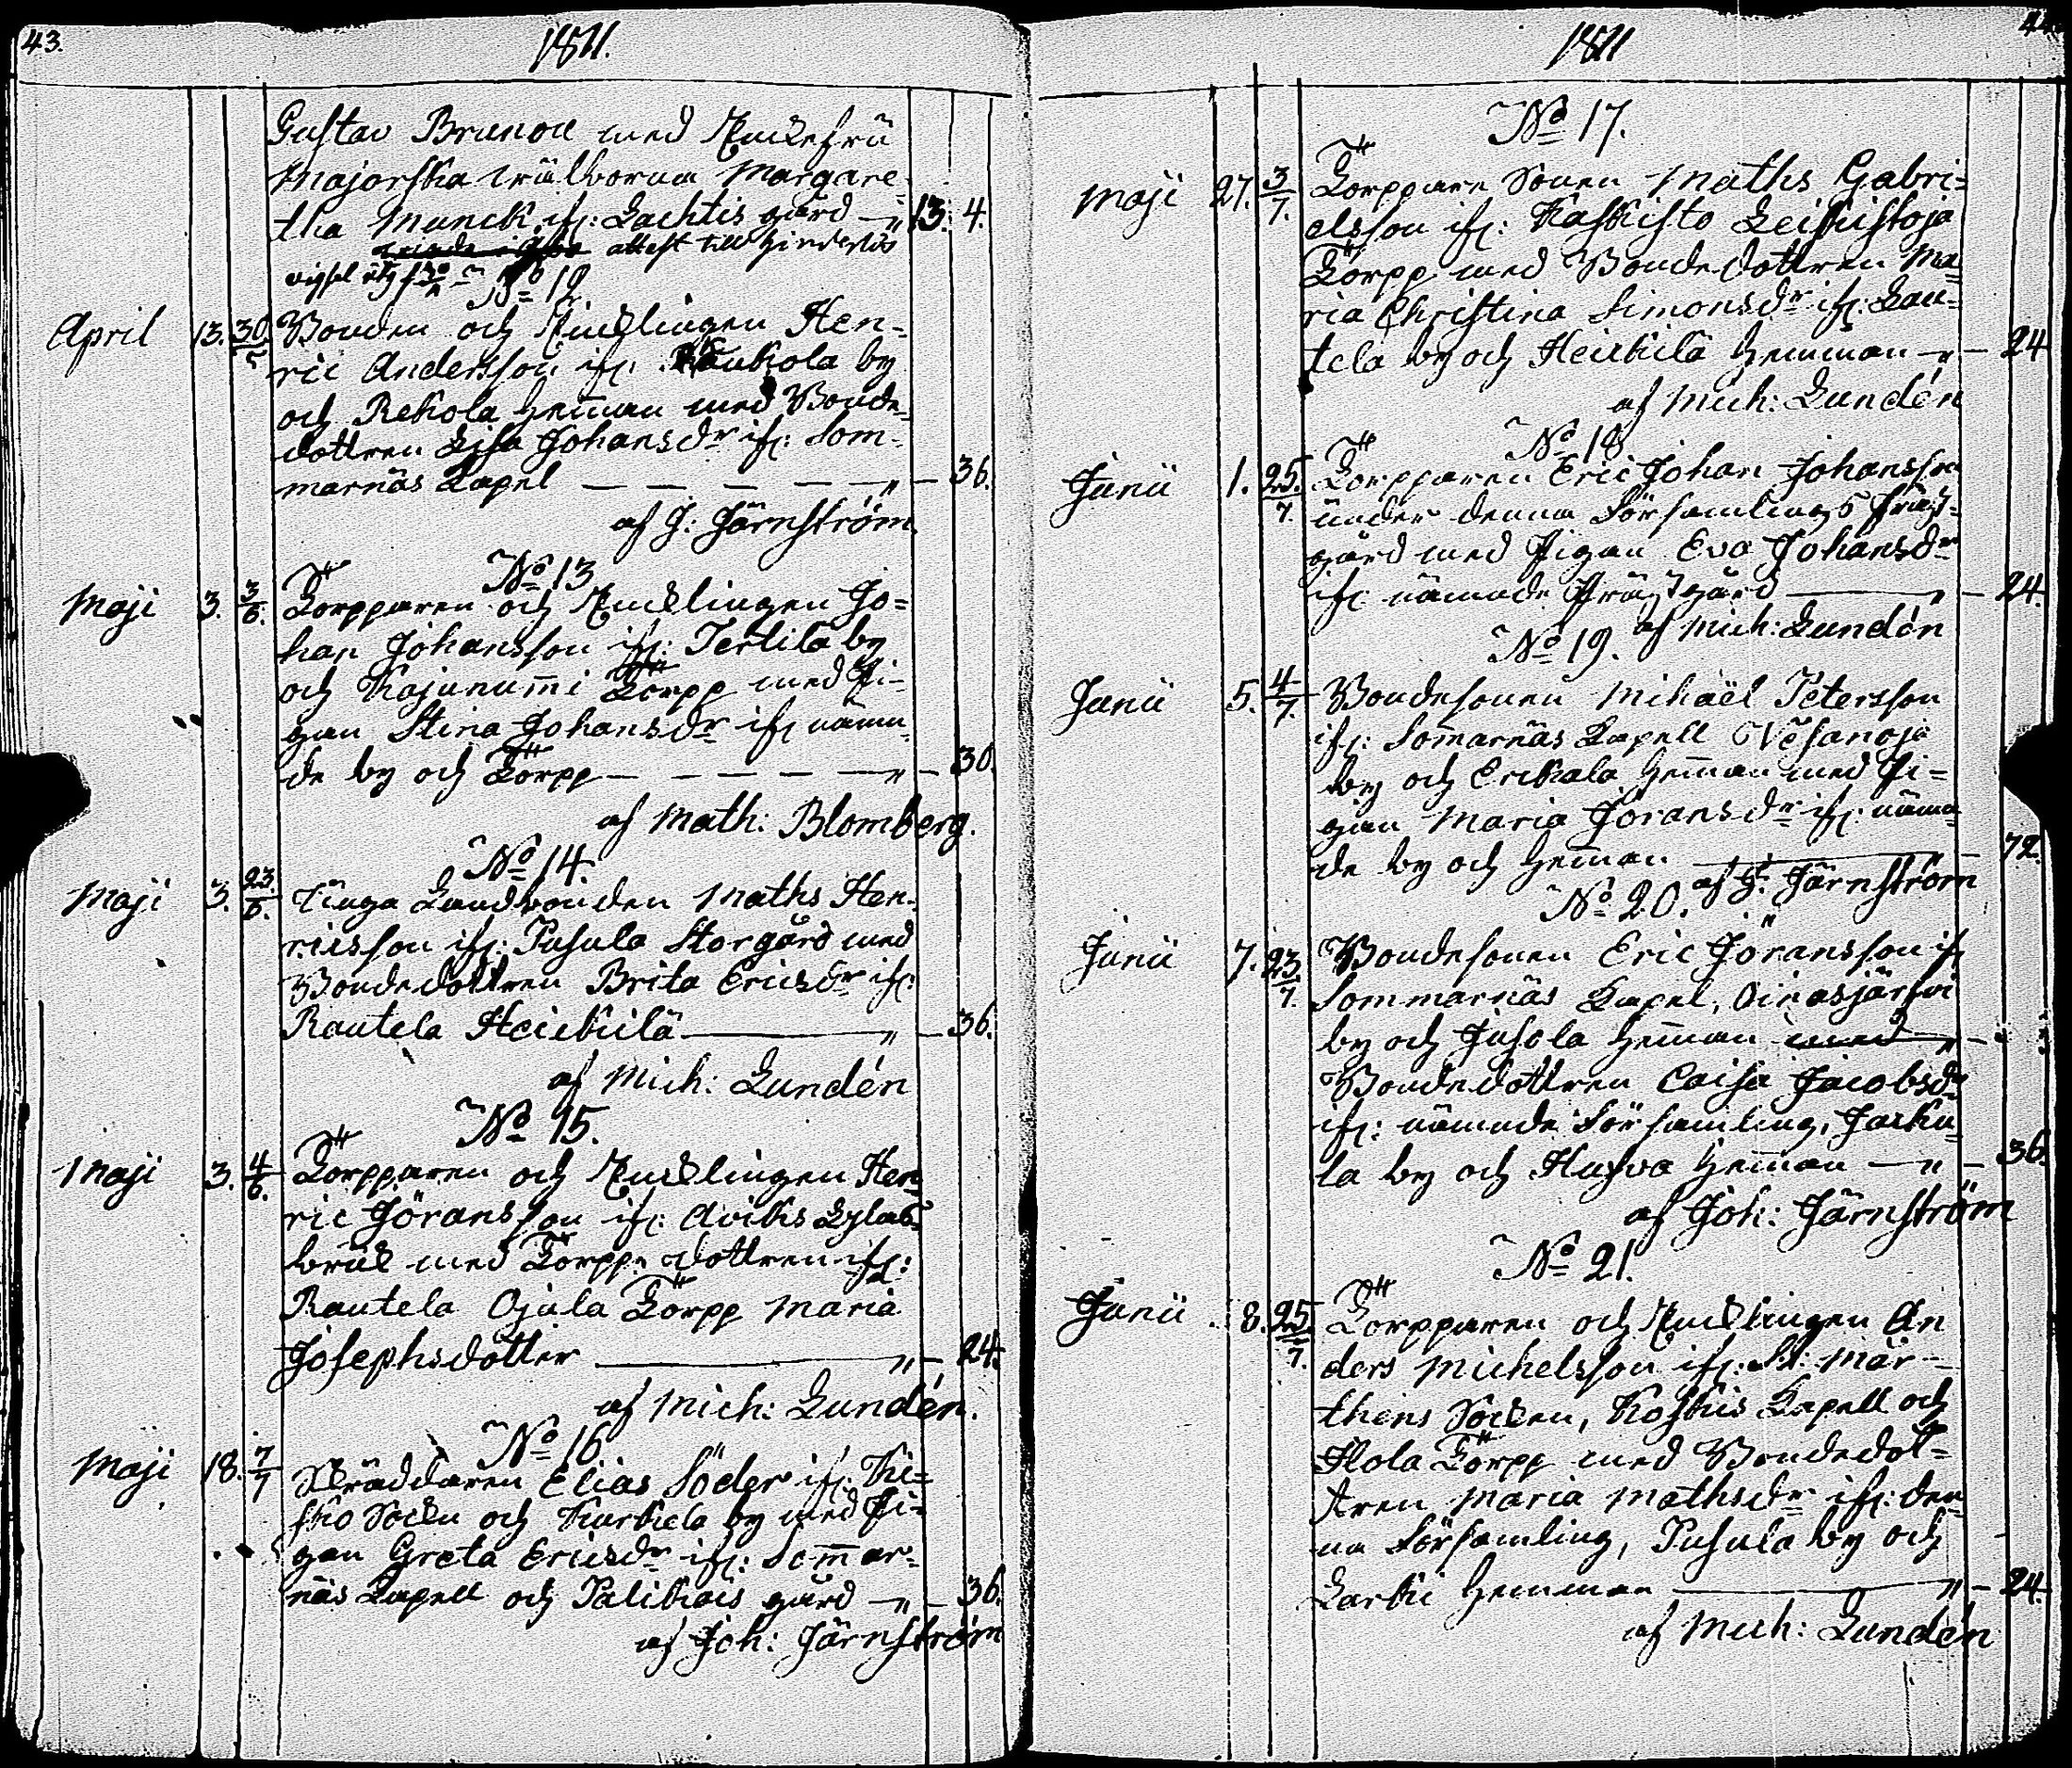 43.
1811.
Gustav Brunou med Enckefru
Majorska wälborna Margare-
tha Munck if: Lachtis gård — " 13: 4.
attest till hinderlös
vigsel utg
No 12
April 13. 30/5 Bonden och Enklingen Hen-
ric Andersson if: Haukola by
och Rekola Hemman med Bonde-
dottren Lisa Johansdr if: Som-
marnäs Capel — — — — — " — 36.
af J: Järnström.
No 13
Maji 3. 3/6. Torpparen och Enklingen Jo=
han Johansson if: Tertilä by
och Kajunummi Torpp med Pi-
gan Stina Johansdr if: nämn-
de by och Torpp — — — — — " — 30.
af Math: Blomberg.
No 14.
Maji 3. 23./6. Unga Landbonden Maths Hen-
ricsson if: Pusula Storgård med
Bondedottren Brita Ericsdr if:
Rautela Heickilä — " — 36.
af Mich: Lundén
No 15.
Maji 3. 4/6. Torpparen och Enklingen Hen
ric Jöransson if: Avikis Glas-
bruk med Torppe dottren if:
Rautela Ojala Torpp Maria
Josephsdotter — " — 24.
af Mich: Lundén.
No 16
Maji 18. 7/7 Skräddaren Elias Söder if: Ki=
sko Sockn och Kurkela by med Pi-
gan Greta Ericsdr if: Sommar-
näs Capell och Palikais gård — " — 36.
af Joh: Järnström
44
1811
No 17.
Maji 27. 3/7. Torppare Sonen Maths Gabri-
elsson if: Kaskisto Leikistoja
Torpp med Bondedottren Ma-
ria Christina Simonsdr if: Rau-
tela by och Heickilä Hemman — " — 24
af Mich: Lundén
No 18
Junii 1. 25./7. Torpparen Eric Johan Johansson
under denna Församlings Präst-
gård med Pigan Eva Johansdr
if: nämnde Prästgård — " — 24.
af Mich: Lundén
No 19.
Junii 5. 4/7. Bondesonen Mihaël Petersson
if: Sommarnäs Capell Vesanoja
by och Erikala Hemman med Pi=
gan Maria Joransdr if: nämn-
de by och Hemman — " — 72.
af J: Järnström
No 20.
Junii 7. 23/7. Bondesonen Eric Jöransson if
Sommarnäs Capel, Oinasjärfwi
by och Jusola Hemman med — "
Bondedottren Caisa Jacobsdr
if: nämnde Församling, Jarku-
la by och Huhva Hemman — " — 36.
af Joh: Järnström
No 21.
Junii 8. 25/7. Torpparen och Enklingen An
ders Michelsson if: St: Mår-
thens Socken, Koskis Capell och
Hola Torpp med Bondedot=
tren Maria Mathsdr if: den
na Församling, Pusula by och
Larkii Hemman — " — 24.
af Mich: Lundén